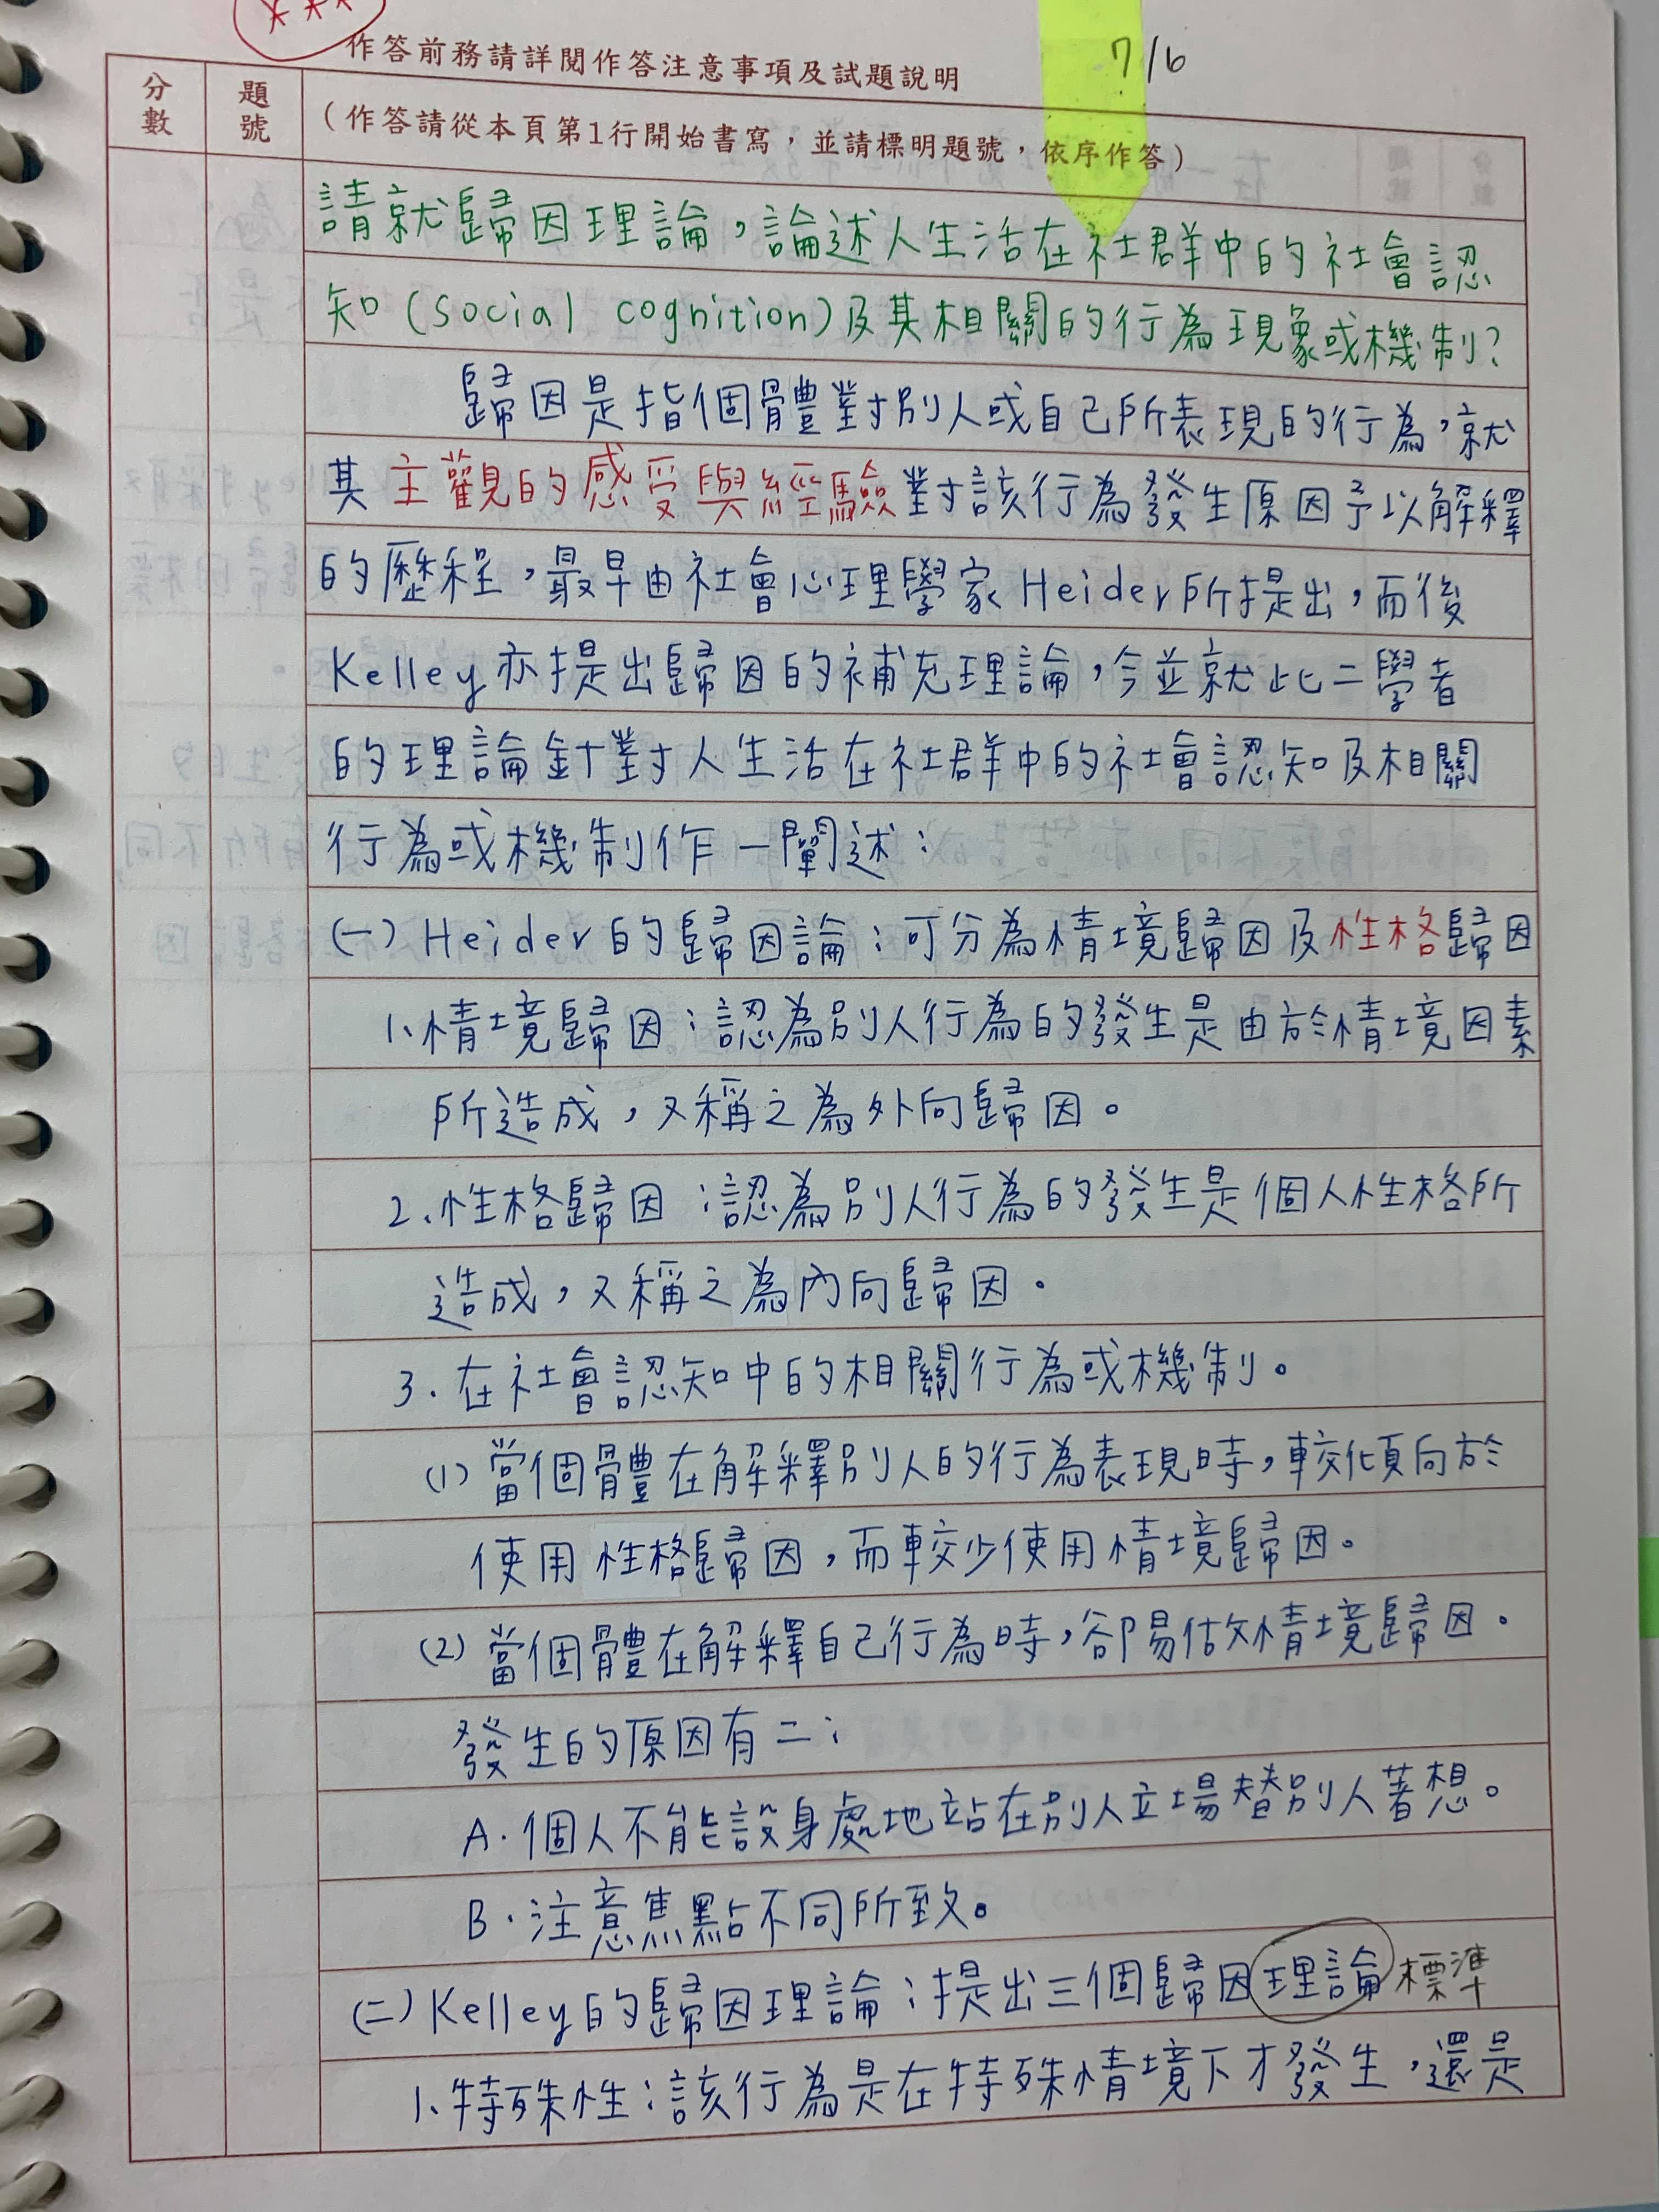 ***
7/6
作答前務請詳閱作答注意事項及試題說明
分數
題號
(作答請從本頁第1行開始書寫,並請標明題號,依序作答)
請就歸因理論,論述人生活在社群中的社會認
知(social cognition)及其相關的行為現象或機制?
歸因是指個體對別人或自己所表現的行為,就
其主觀的感受與經驗對該行為發生原因予以解釋
的歷程,最早由社會心理學家Heider所提出,而後
Kelley亦提出歸因的補充理論,今並就此二學者
的理論針對人生活在社群中的社會認知及相關
行為或機制作一闡述:
(一)Heider的歸因論:可分為情境歸因及性格歸因
1、情境歸因:認為別人行為的發生是由於情境因素
所造成,又稱之為外向歸因。
2、性格歸因:認為別人行為的發生是個人性格所
造成,又稱之為內向歸因。
3.在社會認知中的相關行為或機制。
(1)當個體在解釋別人的行為表現時,較傾向於
使用性格歸因,而較少使用情境歸因。
(2)當個體在解釋自己行為時,卻易作情境歸因。
發生的原因有二:
A.個人不能設身處地站在別人立場替別人著想。
B.注意焦點不同所致。
(二)Kelley的歸因理論:提出三個歸因理論標準
1、特殊性:該行為是在特殊情境下才發生,還是